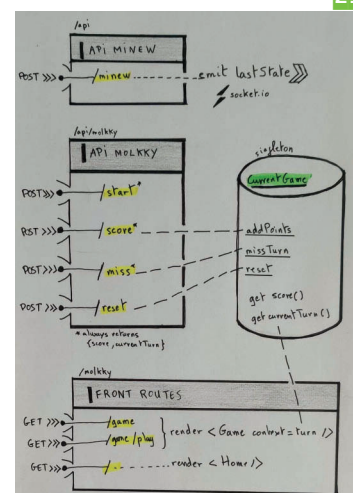 /api
API MINEW
POST >>> /minew ---- emit lastState >>>
socket.io
/api/molkky
API MOLKKY
POST >>> /start*
POST >>> /score*
POST >>> /miss*
POST >>> /reset
* always returns
{score, currentTurn}
singleton
CurrentGame
addPoints
missTurn
reset
get score()
get currentTurn()
/molkky
FRONT ROUTES
GET >>> /game
GET >>> /game/play } render < Game context = turn />
GET >>> /.. ------ render < Home />